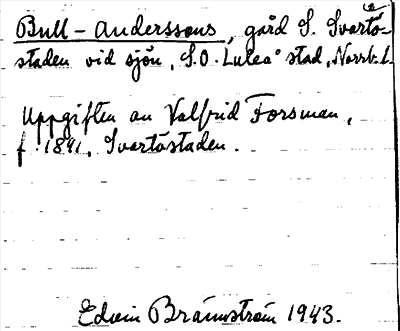 Bull-Anderssons, gård S. Svartö-
staden vid sjön, S.O. Luleå stad, Norrb. l.
Uppgiften av Valfrid Forsman,
f. 1891, Svartöstaden.
Edvin Brännström 1943.